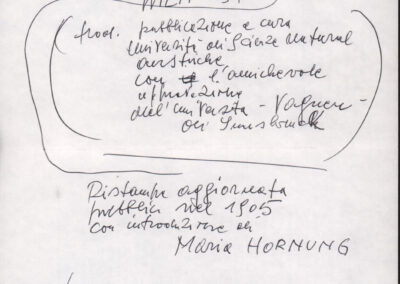 (trad. pubblicazione a cura
università di Scienze natural
austriche
con l'amichevole
dell'università - Vagner -
di Innsbruck
Ristampa aggiornata
pubblic nel 1905
con introduzione di
Maria HORNUNG